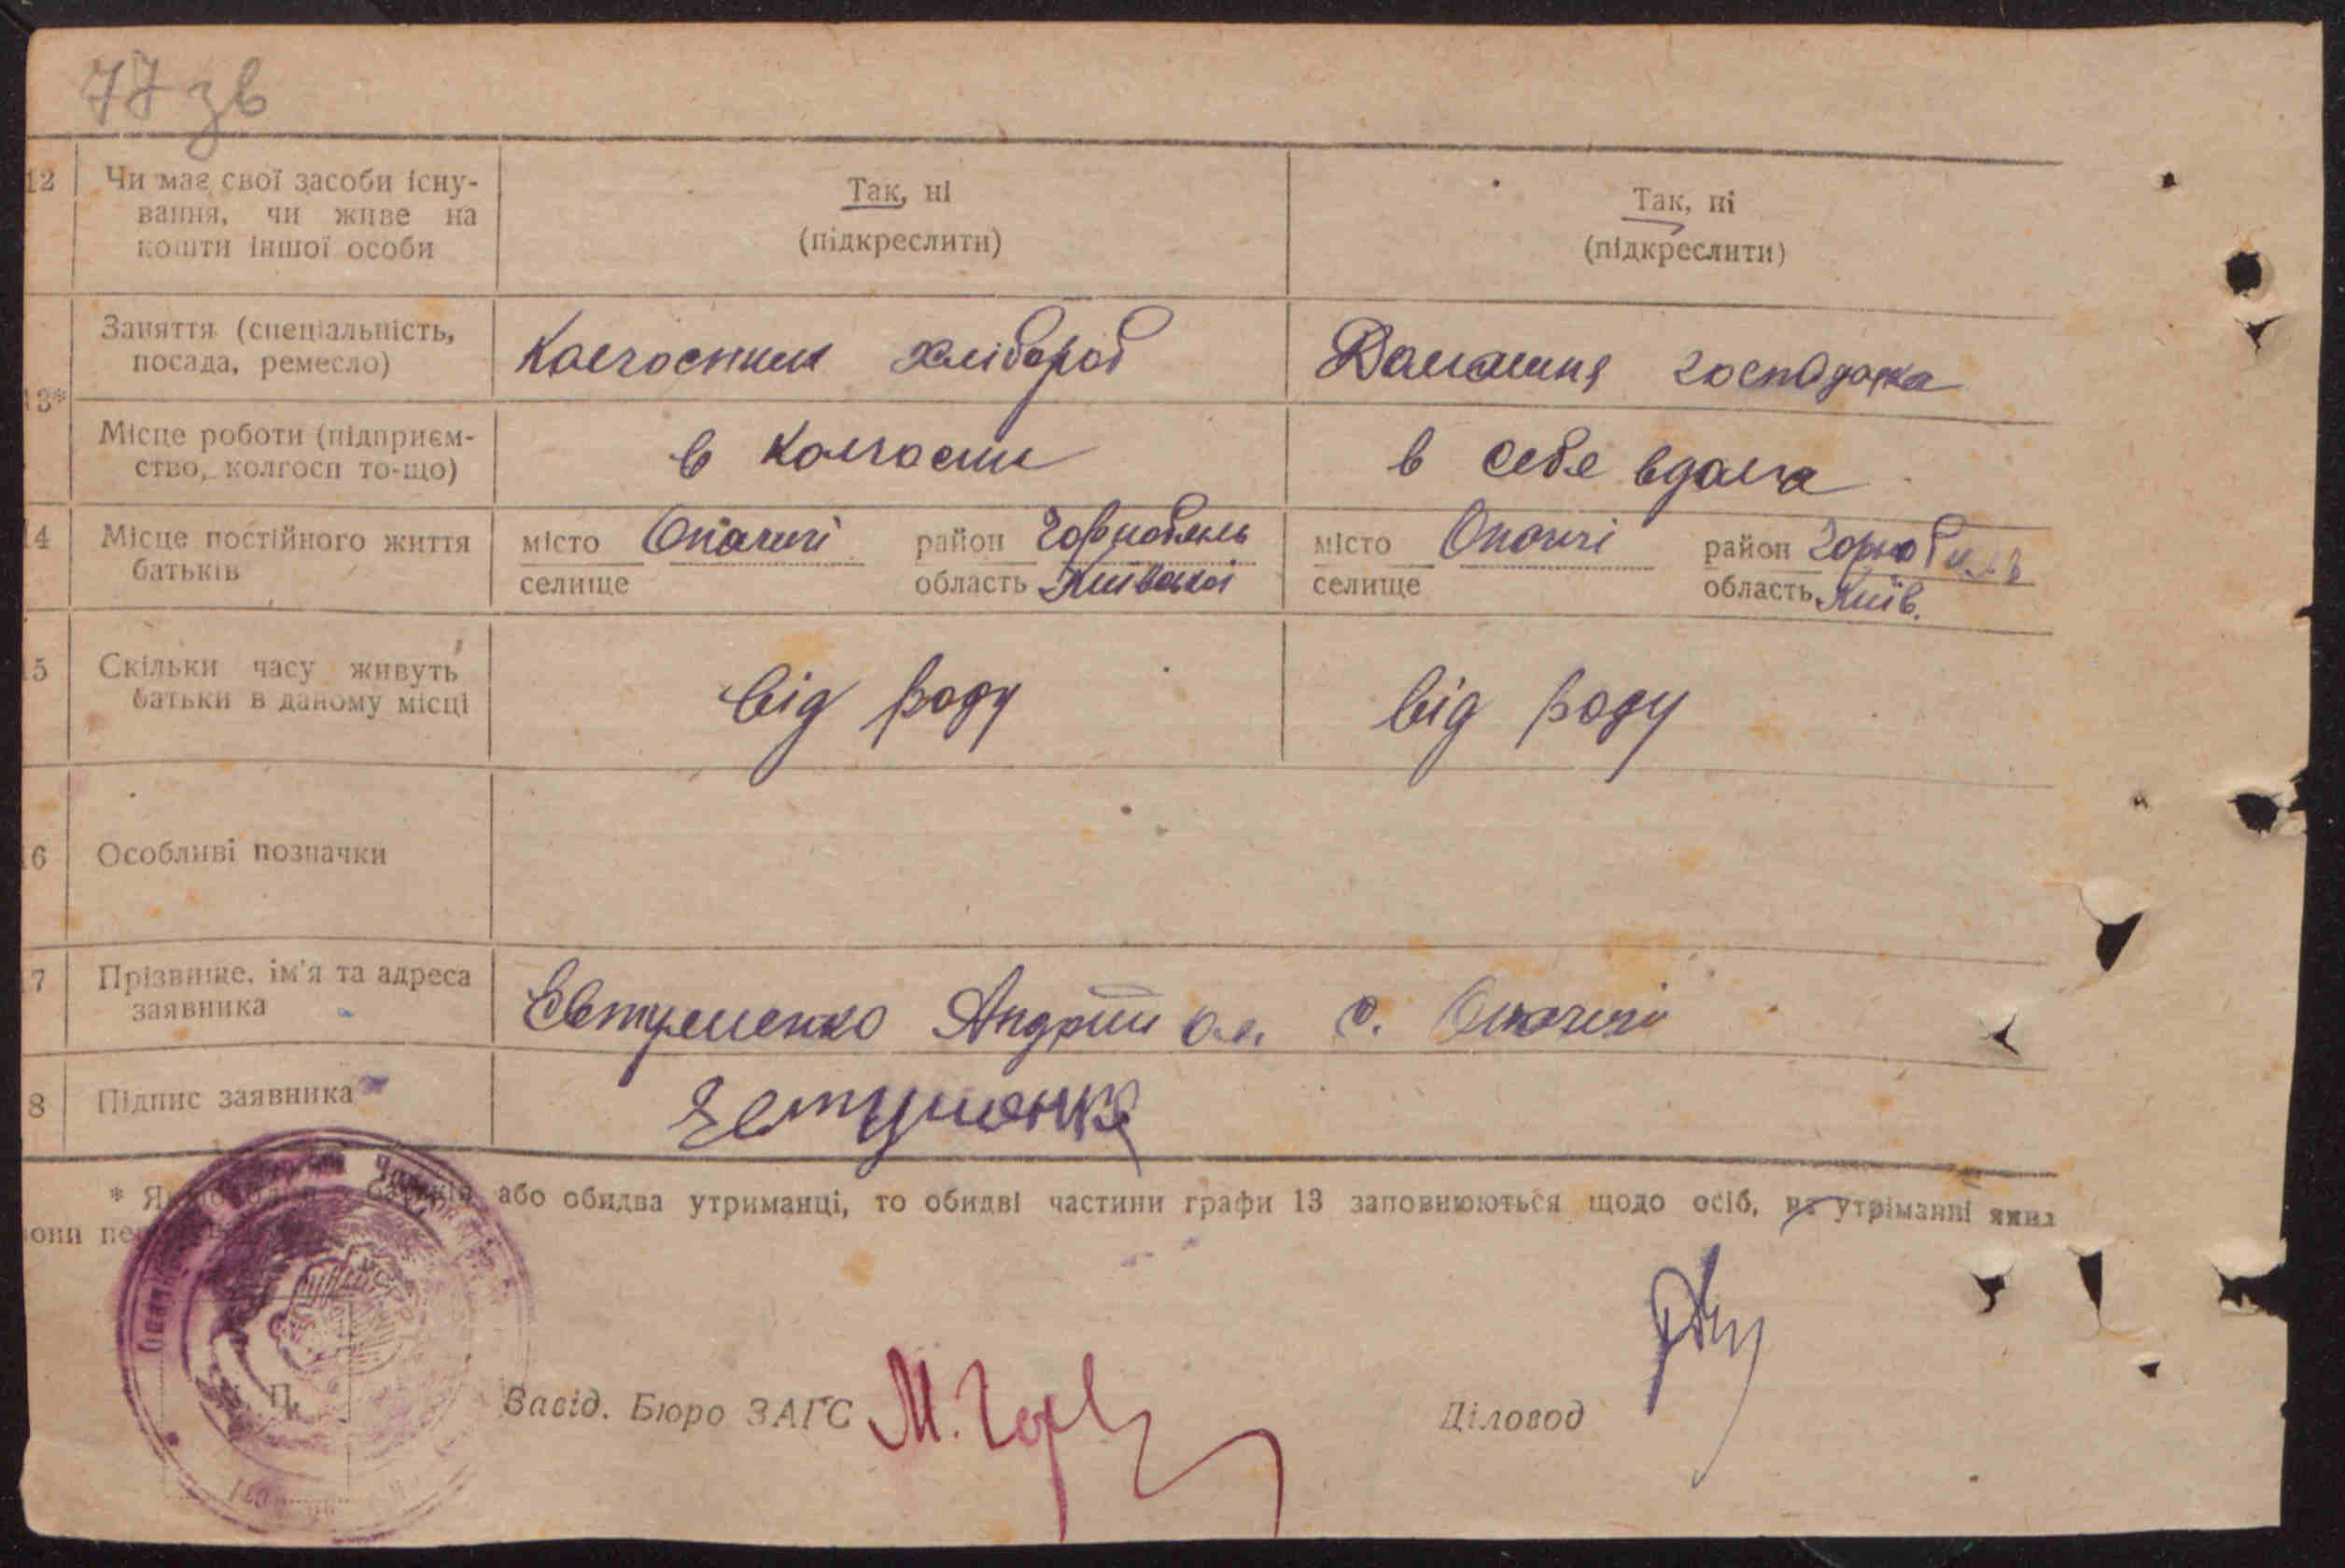 77 зв
12 Чи має свої засоби існу-
вання, чи живе на
кошти іншої особи
Так, ні
(підкреслити)
Так, ні
(підкреслити)
13*
Заняття (спеціальність,
посада, ремесло)
Колгоспник хлібороб
Домашня господарка
Місце роботи (підприєм-
ство, колгосп то-що)
в колгоспи
в себе вдома
14 Місце постійного життя
батьків
місто Опачичі район Чорнобиль
селище область Київської
місто Опачичі район Чорнобиль
селище область Київ.
15 Скільки часу живуть
батьки в даному місці
від роду
від роду
16 Особливі позначки
17 Прізвище, ім'я та адреса
заявника
Євтушенко Андрій ол. с. Опачичі
18 Підпис заявника
Євтушенко
* або обидва утриманці, то обидві частини графи 13 заповнюються щодо осіб, на утріманні яких
вони
М. П.
Завід. Бюро ЗАГС М. Гор
Діловод